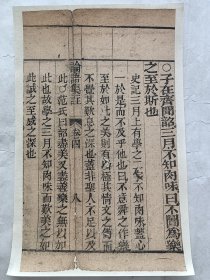 ○子在齊聞韶三月不知肉味曰不圖爲樂
之至於斯也
史記三月上有學之二字不知肉味蓋心
一於是而不及乎他也曰不意舜之作樂
至於如此之美則有以極其情文之備而
論語集註 卷四 八
不覺其歎息之深也蓋非聖人不足以及
此○范氏曰韶盡美又盡善樂之無以加
此也故學之三月不知肉味而歎美之如
此誠之至感之深也